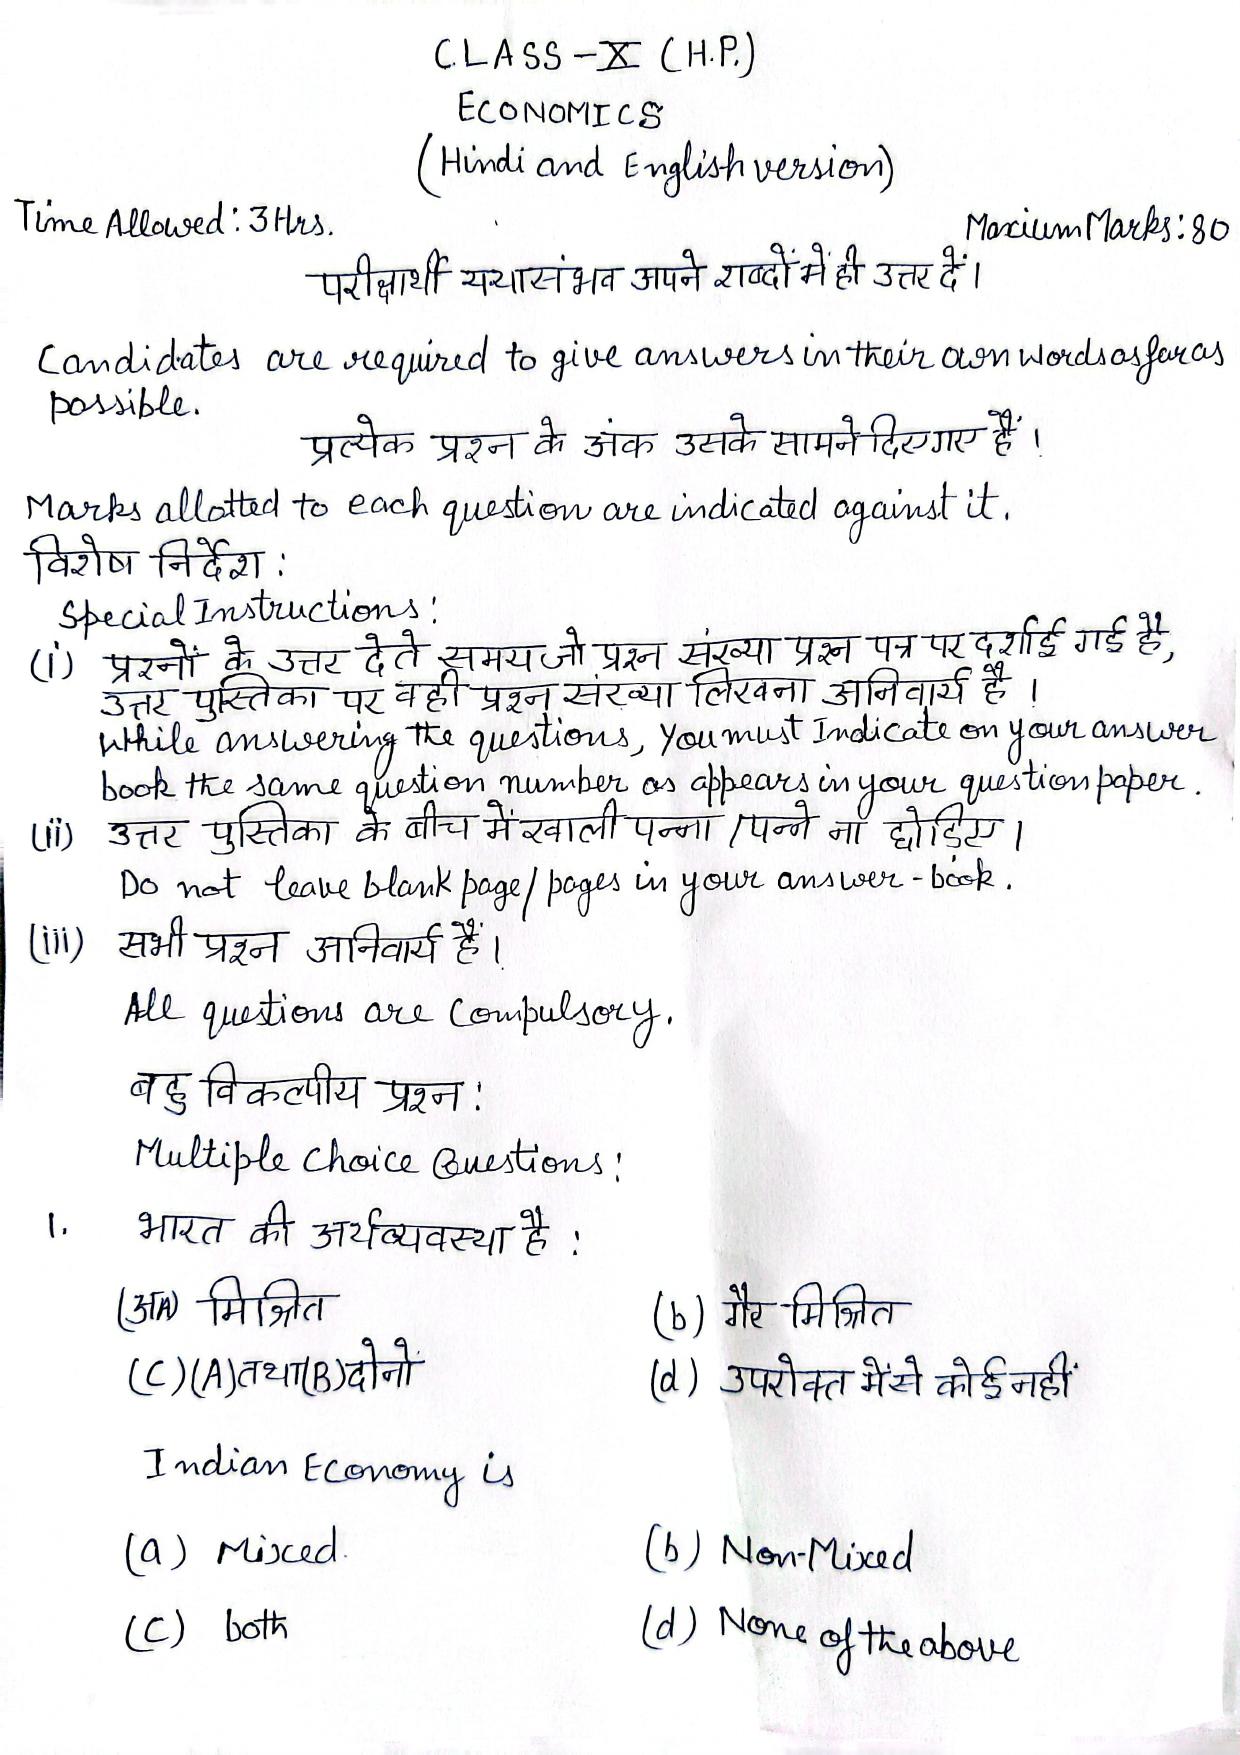 CLASS-X (H.P.)
ECONOMICS
(Hindi and English version)
Time Allowed: 3 Hrs.
Maxium Marks: 80
परीक्षार्थी यथासंभव अपने शब्दों में ही उत्तर दें।
Candidates are required to give answers in their own words as far as
possible.
प्रत्येक प्रश्न के अंक उसके सामने दिए गए हैं।
Marks allotted to each question are indicated against it.
विशेष निर्देश:
Special Instructions:
(i) प्रश्नों के उत्तर देते समय जो प्रश्न संख्या प्रश्न पत्र पर दर्शाई गई है,
उत्तर पुस्तिका पर वही प्रश्न संख्या लिखना अनिवार्य है।
While answering the questions, You must Indicate on your answer
book the same question number as appears in your question paper.
(ii) उत्तर पुस्तिका के बीच में खाली पन्ना / पन्ने ना छोड़िए।
Do not leave blank page/pages in your answer-book.
(iii) सभी प्रश्न अनिवार्य हैं।
All questions are Compulsory.
बहु विकल्पीय प्रश्न:
Multiple Choice Questions:
1. भारत की अर्थव्यवस्था है:
(अA) मिश्रित (b) गैर मिश्रित
(C) (A) तथा (B) दोनों (d) उपरोक्त में से कोई नहीं
Indian Economy is
(a) Mixed. (b) Non-Mixed
(C) both (d) None of the above